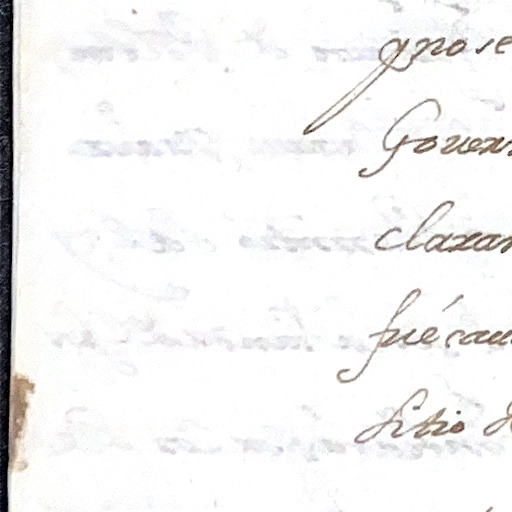 q no se
Govern
claran
fué cau
sitio d